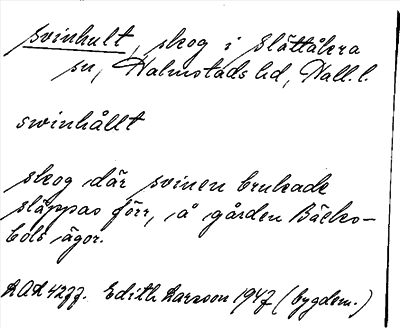 svinhult, skog i Slättåkra
sn, Halmstads hd, Hall. l.
swinhållt
skog där svinen brukade
släppas förr, å gården Bäcks-
bols ägor.
DAL 4277. Edith Larsson 1947 (bygdem.)